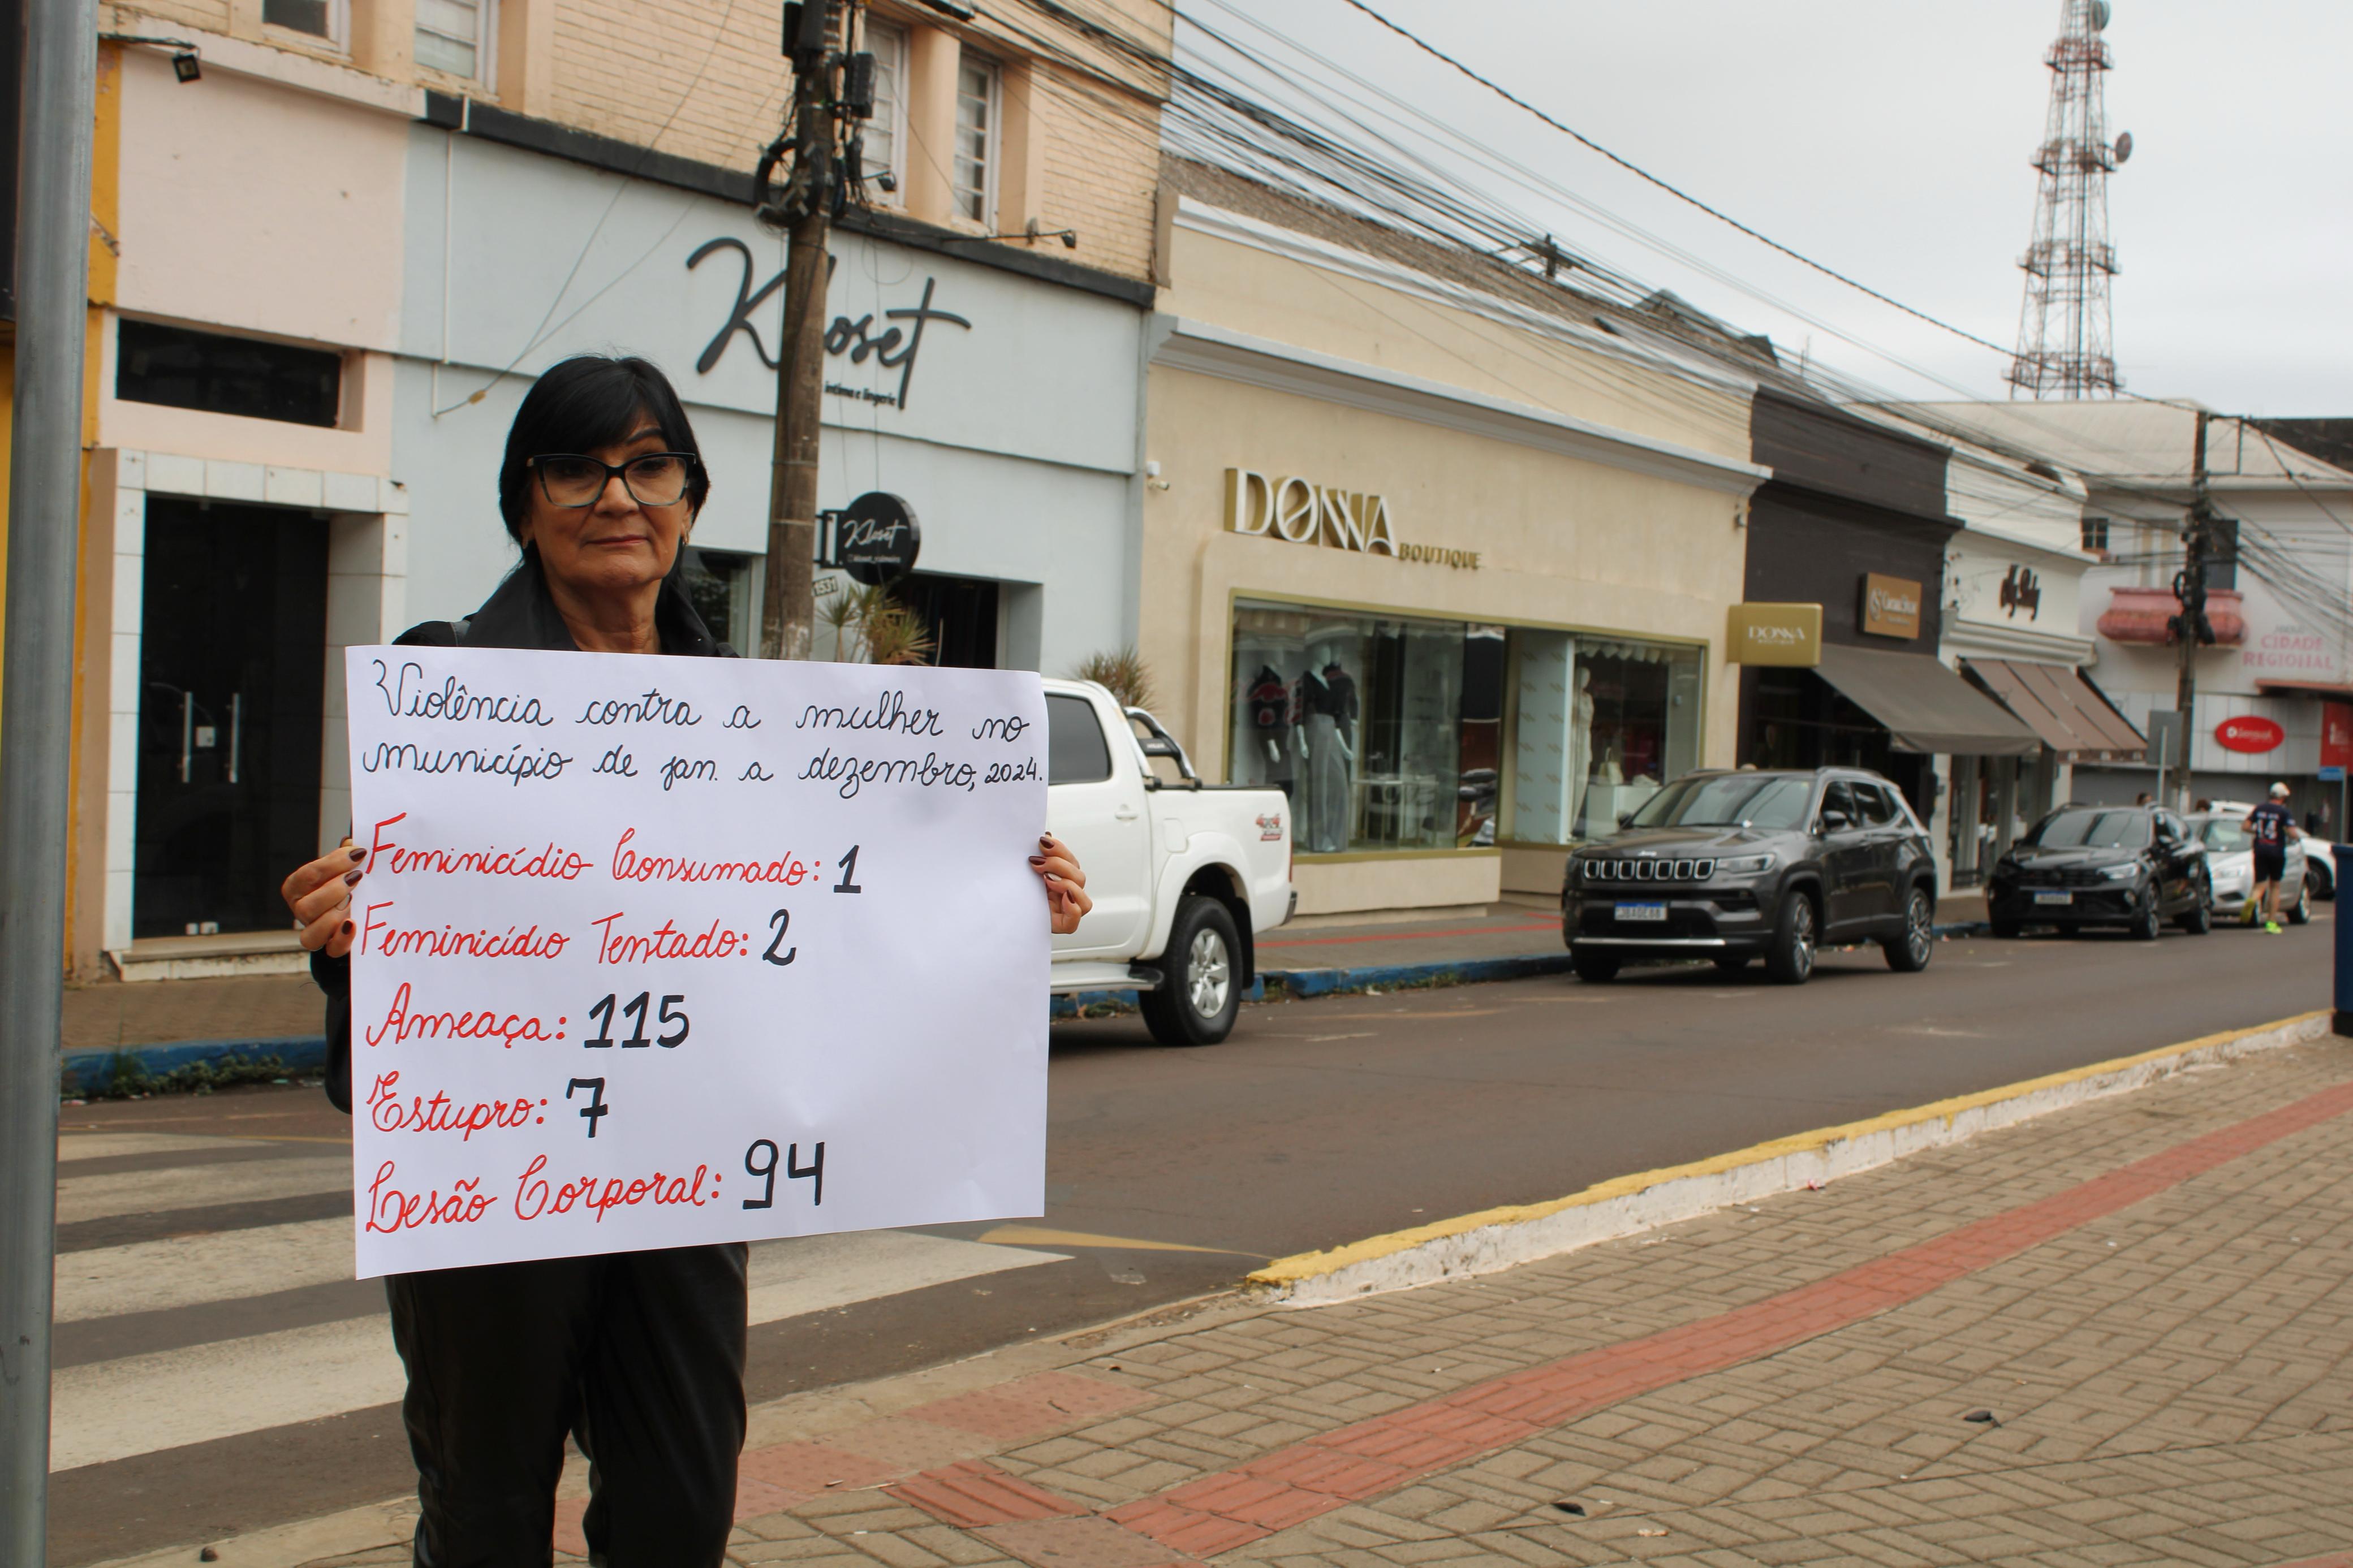 Kloset
íntima e lingerie
Kloset
1531
DONNA
BOUTIQUE
DONNA
CIDADE
REGIONAL
14
Violência contra a mulher no
município de jan. a dezembro, 2024.
Feminicídio Consumado: 1
Feminicídio Tentado: 2
Ameaça: 115
Estupro: 7
Lesão Corporal: 94